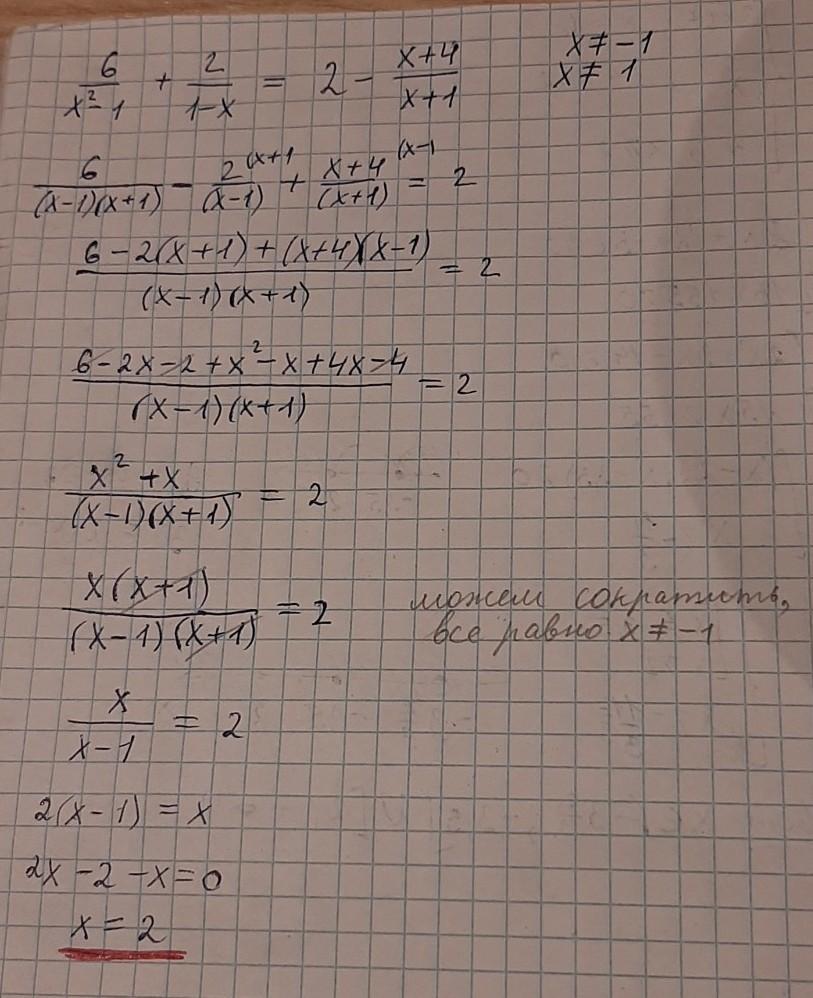 6/(x²-1) + 2/(1-x) = 2 - (x+4)/(x+1)   x ≠ -1
x ≠ 1
6/((x-1)(x+1)) - 2^(x+1/(x-1) + x+4^(x-1/(x+1) = 2
(6-2(x+1)+(x+4)(x-1))/((x-1)(x+1)) = 2
(6-2x-2+x²-x+4x-4)/((x-1)(x+1)) = 2
(x²+x)/((x-1)(x+1)) = 2
x(x+1)/((x-1)(x+1)) = 2   можем сократить,
все равно x ≠ -1
x/(x-1) = 2
2(x-1) = x
2x-2-x=0
x = 2